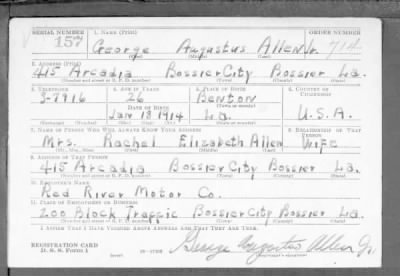 SERIAL NUMBER 1. NAME (Print) ORDER NUMBER
157 George Augustus Allen Jr. 714
(First) (Middle) (Last)
2. ADDRESS (Print)
415 Arcadia Bossier City Bossier La.
(Number and street or R. F. D. number) (Town) (County) (State)
3. TELEPHONE 4. AGE IN YEARS 5. PLACE OF BIRTH 6. COUNTRY OF CITIZENSHIP
3-7916 26 Benton
DATE OF BIRTH (Town or county)
Jan 18 1914 La. U.S.A.
(Mo.) (Day) (Yr.) (State or country)
7. NAME OF PERSON WHO WILL ALWAYS KNOW YOUR ADDRESS 8. RELATIONSHIP OF THAT PERSON
Mrs. Rachel Elizabeth Allen Wife
(Mr., Mrs., Miss) (First) (Middle) (Last)
9. ADDRESS OF THAT PERSON
415 Arcadia Bossier City Bossier La.
(Number and street or R. F. D. number) (Town) (County) (State)
10. EMPLOYER'S NAME
Red River Motor Co.
11. PLACE OF EMPLOYMENT OR BUSINESS
200 Block Traffic Bossier City Bossier La.
(Number and street or R. F. D. number) (Town) (County) (State)
I AFFIRM THAT I HAVE VERIFIED ABOVE ANSWERS AND THAT THEY ARE TRUE.
REGISTRATION CARD
D. S. S. Form 1 George Augustus Allen Jr.
(over) (Registrant's signature)